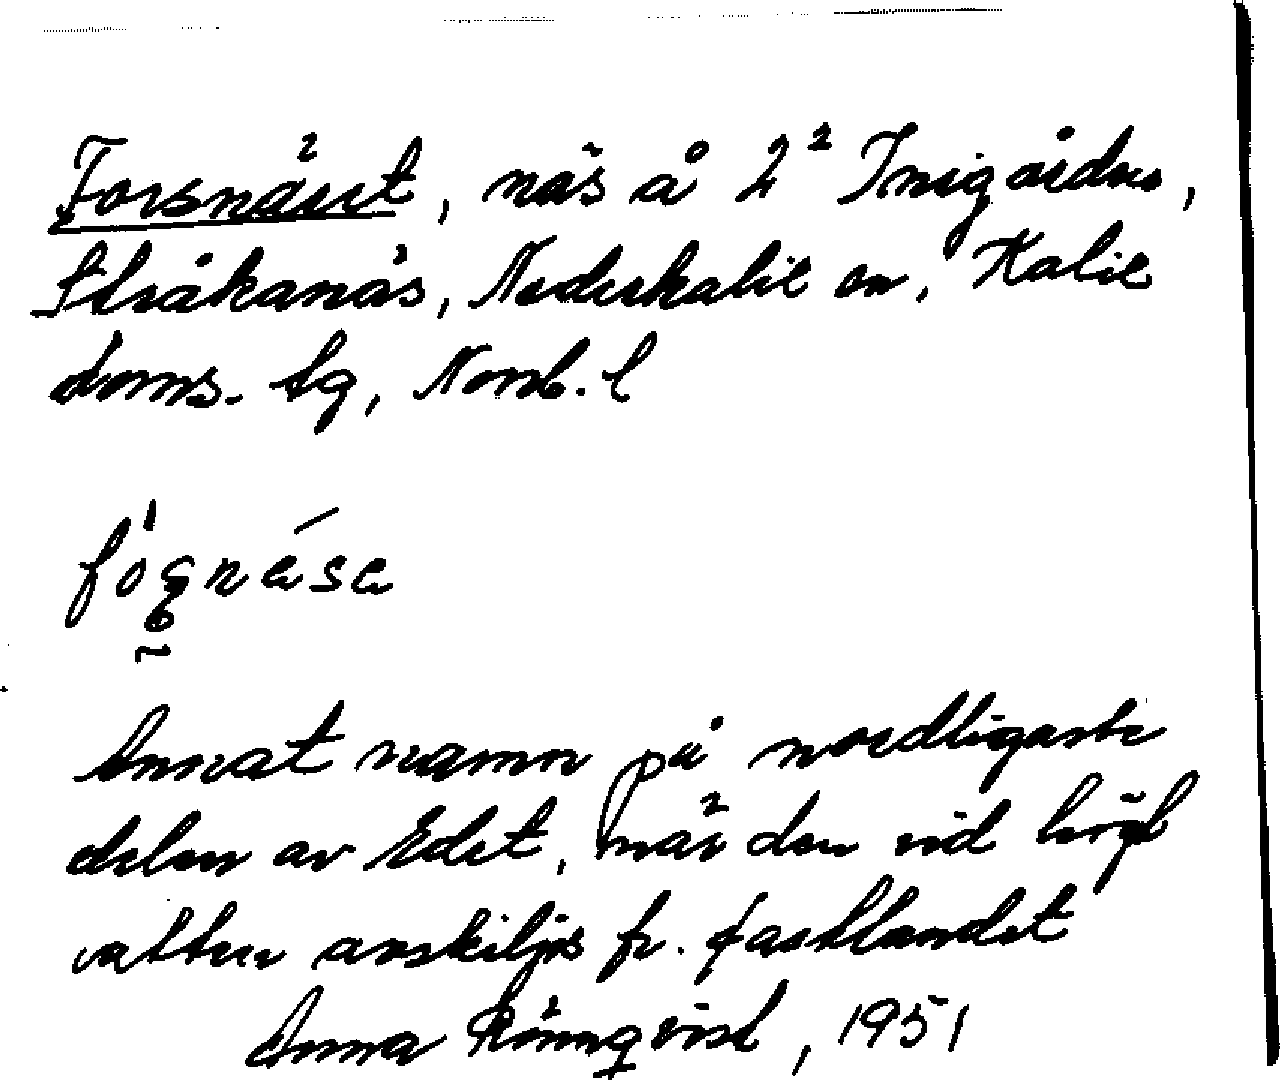 Forsnäset, näs å 2² Inigården,
Stråkanäs, Nederkalix sn, Kalix
doms. tg, Norrb. l
fo̍ṣnésa
Annat namn på nordligaste
delen av Edet, när den vid högt
vatten avskiljs fr. fastlandet
Anna Rönnqvist, 1951